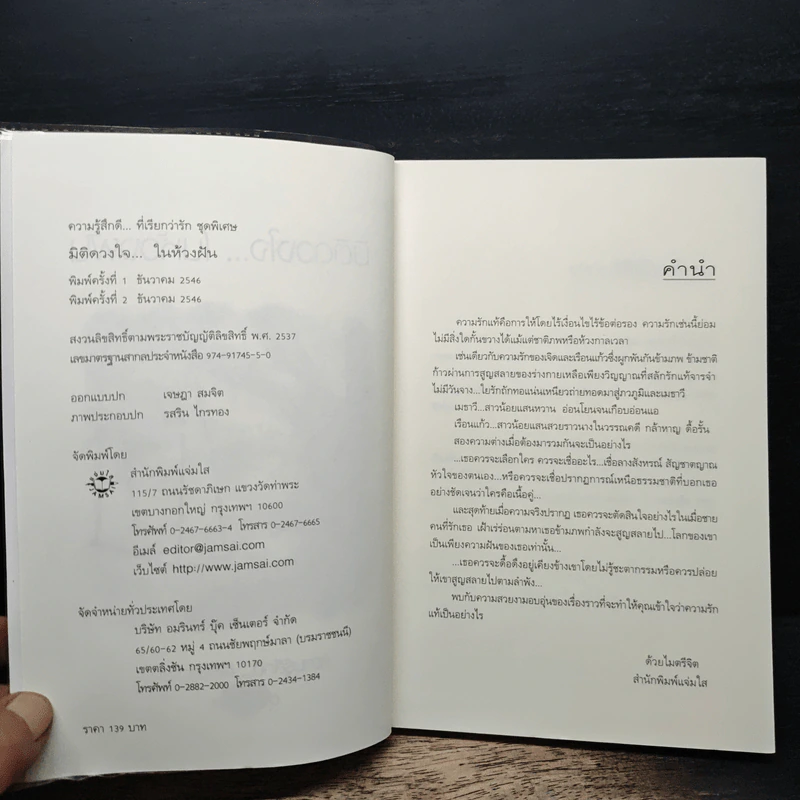 ความรู้สึกดี... ที่เรียกว่ารัก ชุดพิเศษ
มิติดวงใจ... ในห้วงฝัน
พิมพ์ครั้งที่ 1 ธันวาคม 2546
พิมพ์ครั้งที่ 2 ธันวาคม 2546
สงวนลิขสิทธิ์ตามพระราชบัญญัติลิขสิทธิ์ พ.ศ. 2537
เลขมาตรฐานสากลประจำหนังสือ 974-91745-5-0
ออกแบบปก เจษฎา สมจิต
ภาพประกอบปก รสริน ไกรทอง
จัดพิมพ์โดย
สำนักพิมพ์แจ่มใส
115/7 ถนนรัชดาภิเษก แขวงวัดท่าพระ
เขตบางกอกใหญ่ กรุงเทพฯ 10600
โทรศัพท์ 0-2467-6663-4 โทรสาร 0-2467-6665
อีเมล์ editor@jamsai.com
เว็บไซต์ http://www.jamsai.com
จัดจำหน่ายทั่วประเทศโดย
บริษัท อมรินทร์ บุ๊ค เซ็นเตอร์ จำกัด
65/60-62 หมู่ 4 ถนนชัยพฤกษ์มาลา (บรมราชชนนี)
เขตตลิ่งชัน กรุงเทพฯ 10170
โทรศัพท์ 0-2882-2000 โทรสาร 0-2434-1384
ราคา 139 บาท
คำนำ
ความรักแท้คือการให้โดยไร้เงื่อนไขไร้ข้อต่อรอง ความรักเช่นนี้ย่อม
ไม่มีสิ่งใดกั้นขวางได้แม้แต่ชาติภพหรือห้วงกาลเวลา
เช่นเดียวกับความรักของเจิดและเรือนแก้วซึ่งผูกพันกันข้ามภพ ข้ามชาติ
ก้าวผ่านการสูญสลายของร่างกายเหลือเพียงวิญญาณที่สลักรักแท้จารจำ
ไม่มีวันจาง...ใยรักถักทอแน่นเหนียวถ่ายทอดมาสู่ภวภูมิและเมธาวี
เมธาวี...สาวน้อยแสนหวาน อ่อนโยนจนเกือบอ่อนแอ
เรือนแก้ว...สาวน้อยแสนสวยราวนางในวรรณคดี กล้าหาญ ดื้อรั้น
สองความต่างเมื่อต้องมารวมกันจะเป็นอย่างไร
...เธอควรจะเลือกใคร ควรจะเชื่ออะไร...เชื่อลางสังหรณ์ สัญชาตญาณ
หัวใจของตนเอง...หรือควรจะเชื่อปรากฏการณ์เหนือธรรมชาติที่บอกเธอ
อย่างชัดเจนว่าใครคือเนื้อคู่...
และสุดท้ายเมื่อความจริงปรากฏ เธอควรจะตัดสินใจอย่างไรในเมื่อชาย
คนที่รักเธอ เฝ้าเร่ร่อนตามหาเธอข้ามภพกำลังจะสูญสลายไป...โลกของเขา
เป็นเพียงความฝันของเธอเท่านั้น...
...เธอควรจะดื้อดึงอยู่เคียงข้างเขาโดยไม่รู้ชะตากรรมหรือควรปล่อย
ให้เขาสูญสลายไปตามลำพัง...
พบกับความสวยงามอบอุ่นของเรื่องราวที่จะทำให้คุณเข้าใจว่าความรัก
แท้เป็นอย่างไร
ด้วยไมตรีจิต
สำนักพิมพ์แจ่มใส